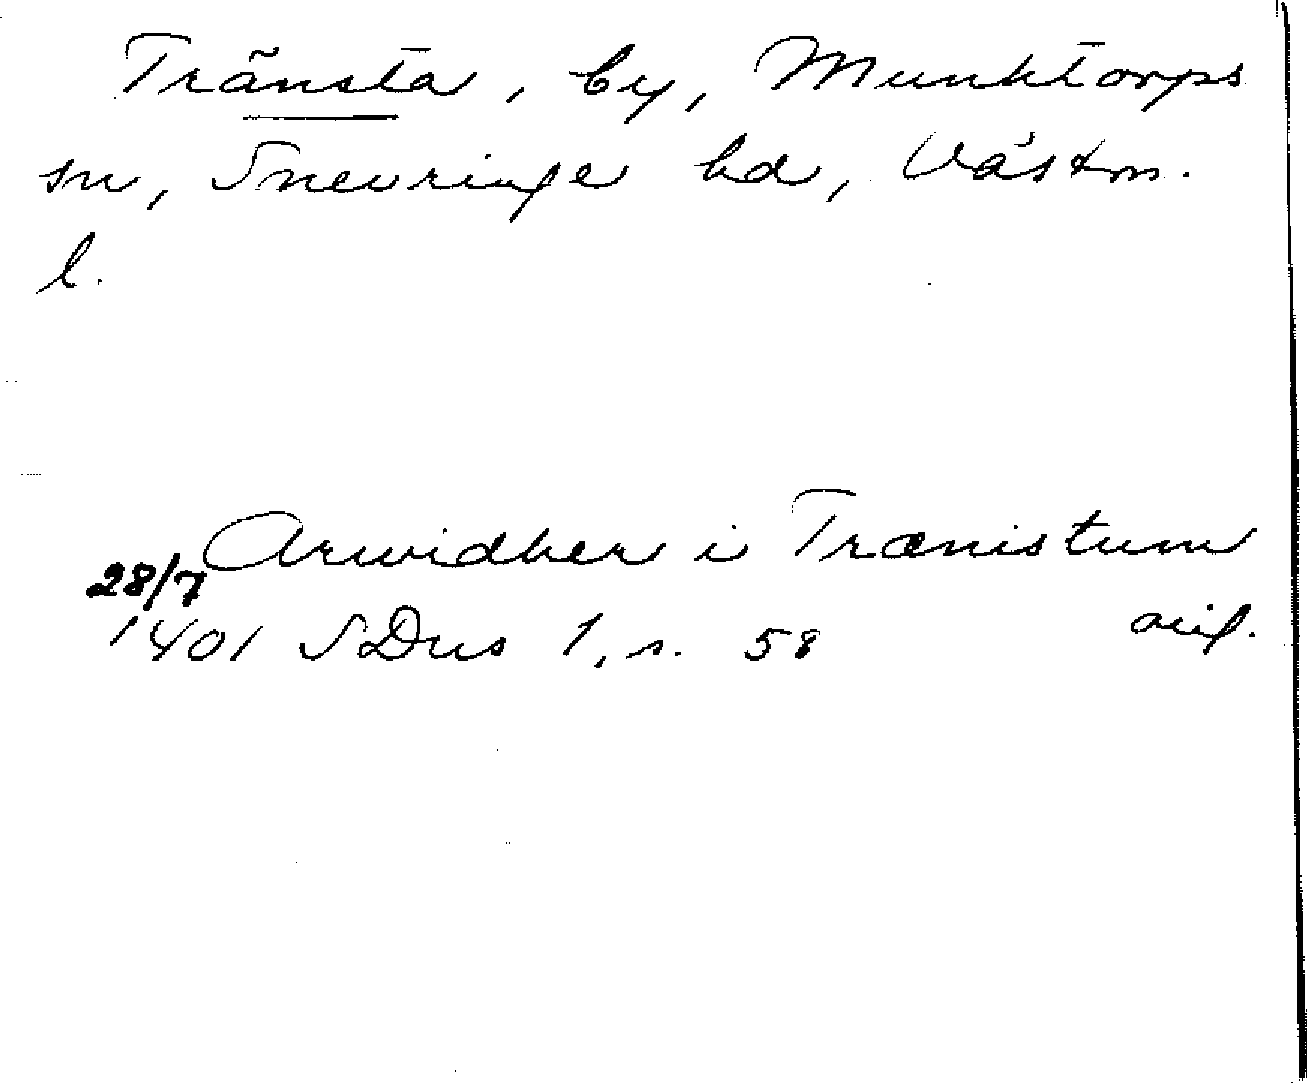 Tränsta, by, Munktorps
sn, Snevringe hd, Västm.
l.
Arwidher i Trænistum
28/7
1401 SDns 1, s. 58 orig.